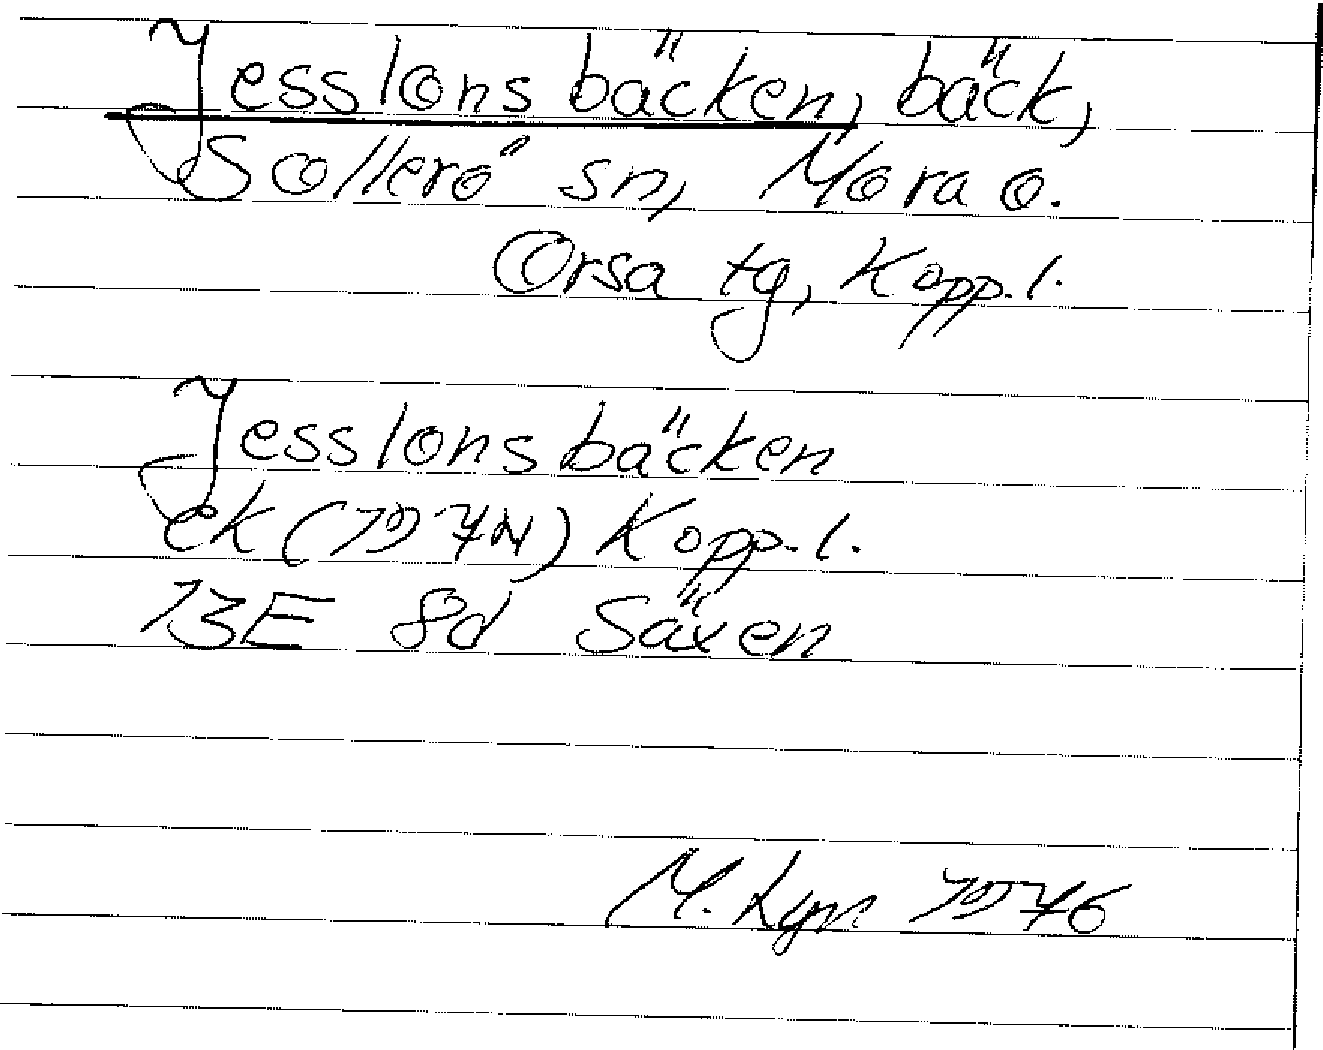 Jesslonsbäcken, bäck,
Sollerö sn, Mora o.
Orsa tg, Kopp. l.
Jesslonsbäcken
ek (1974) Kopp. l.
13E 8d Säxen
M. Lgn 1976